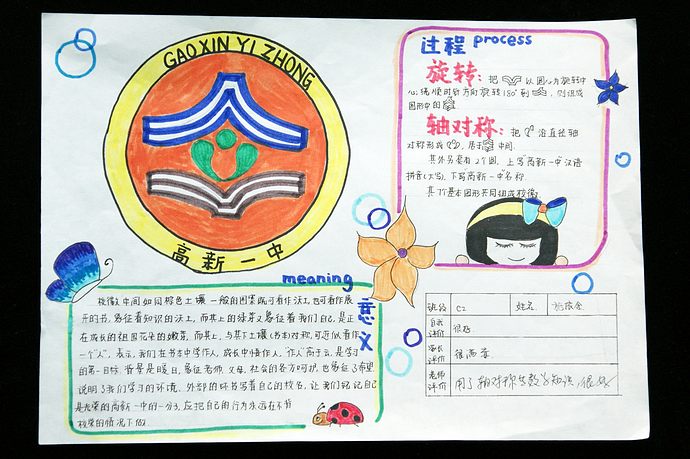 GAOXIN YI ZHONG
高新一中
过程 process
旋转: 把 以圆心为旋转中
心,绕顺时针方向旋转180°到 , 则组成
图形中的 。
轴对称: 把 沿直径轴
对称形成 , 居于 中间.
其外另套有2个圆, 上写高新一中汉语
拼音(大写), 下写高新一中名称.
其7个基本图形共同组成校徽.
meaning
意义
校徽中间如同棕色土壤一般的图案既可看作沃土,也可看作展
开的书,象征着知识的沃土,而其上的绿芽又象征着我们自己,是正
在成长的祖国花朵的嫩芽. 而其上,与其下土壤(书本)对称,可近似看作
一个"人",表示,我们在书本中学作人,成长中悟作人,"作人"高于云,是学习
的第一目标.背景是暖日,象征老师,父母,社会的各方呵护,也象征了希望
说明了我们学习的环境.外部的环书写着自己的校名,让我们铭记自己
是光荣的高新一中的一分子,应把自己的行为永远在不背
校荣的情况下做.
班级 C2 姓名
自我评价 很好.
家长评价
老师评价 用了轴对称与数学知识,很好